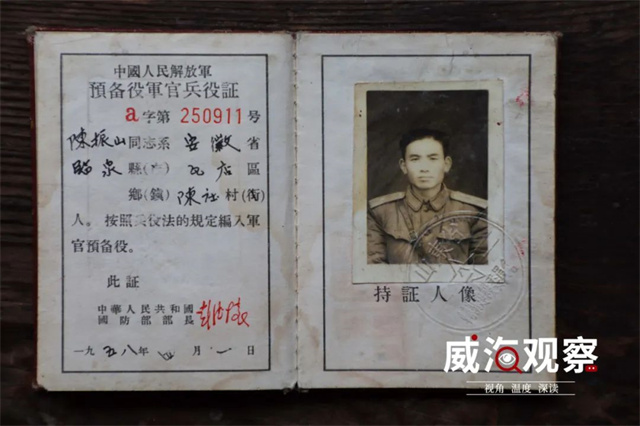 中國人民解放軍
預备役軍官兵役証
a字第 250911 号
陳振山同志系 安徽 省
臨泉 縣(市) 瓦店 區
鄉(鎮) 陳社 村(街)
人。按照兵役法的規定編入軍
官預备役。
此証
中華人民共和國
國防部部長 彭德怀
一九五八年 四 月 一 日
持証人像
威海观察
视角 温度 深读